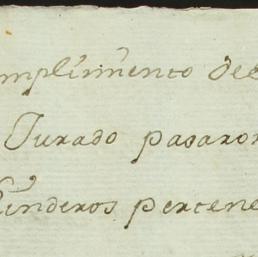 mplimento de
Jurado pasaron
Linderos pertene